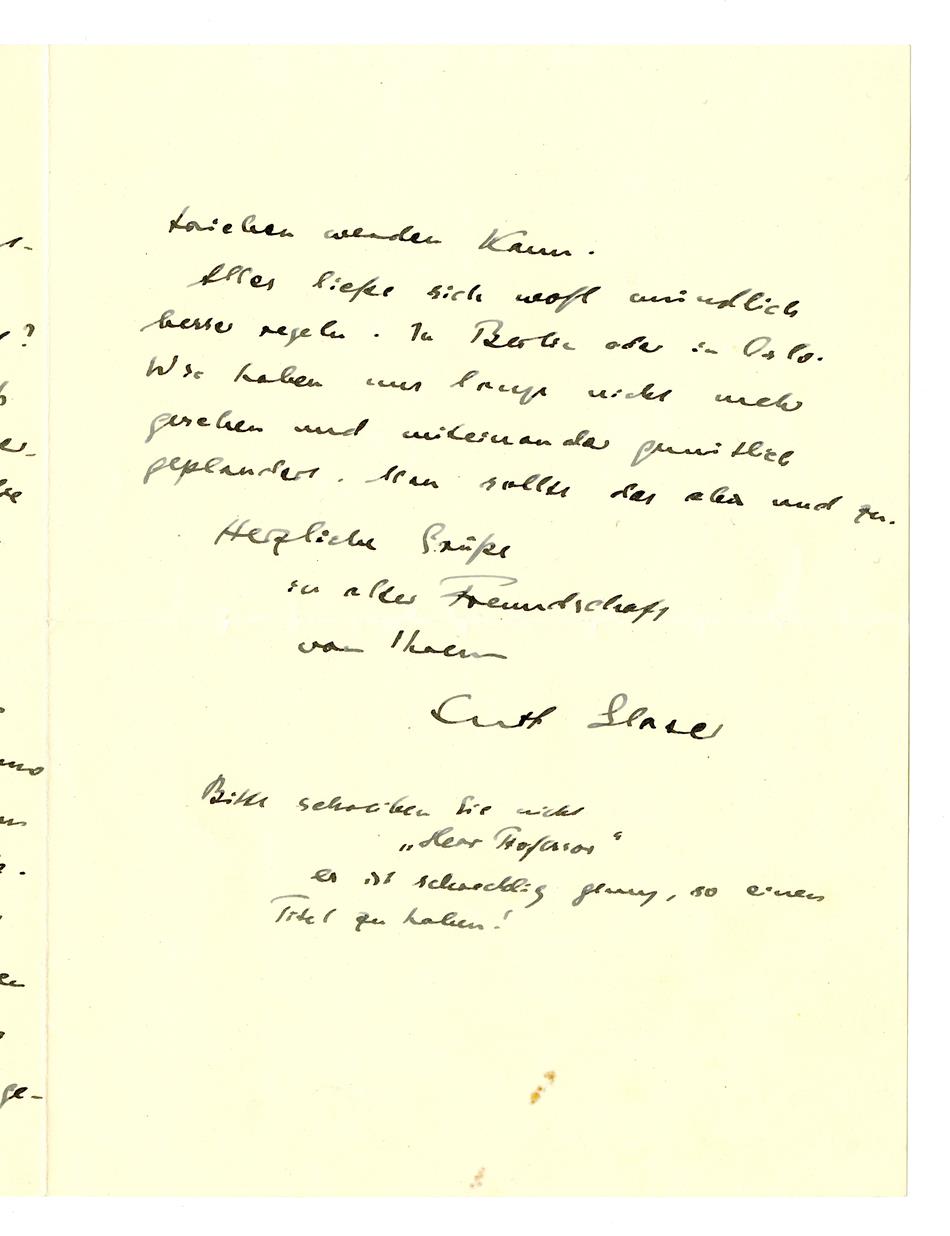 trieben werden kann.
Alles ließe sich wohl mündlich
besser regeln. In Berlin oder in Oslo.
Wir haben uns lange nicht mehr
gesehen und miteinander gemütlich
geplaudert. Man sollte das aber und zu.
Herzliche Grüße
in alter Freundschaft
von Ihrem
Curt Glaser
Bitte schreiben Sie nicht
„Herr Professor“
es ist schrecklich genug, so einen
Titel zu haben!